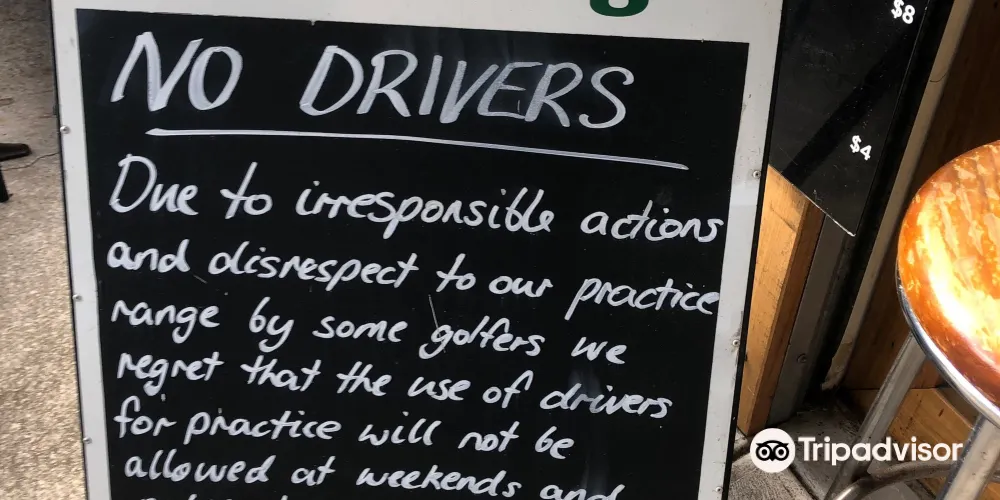 NO DRIVERS
Due to irresponsible actions
and disrespect to our practice
range by some golfers we
regret that the use of drivers
for practice will not be
allowed at weekends and
$8
$4
Tripadvisor